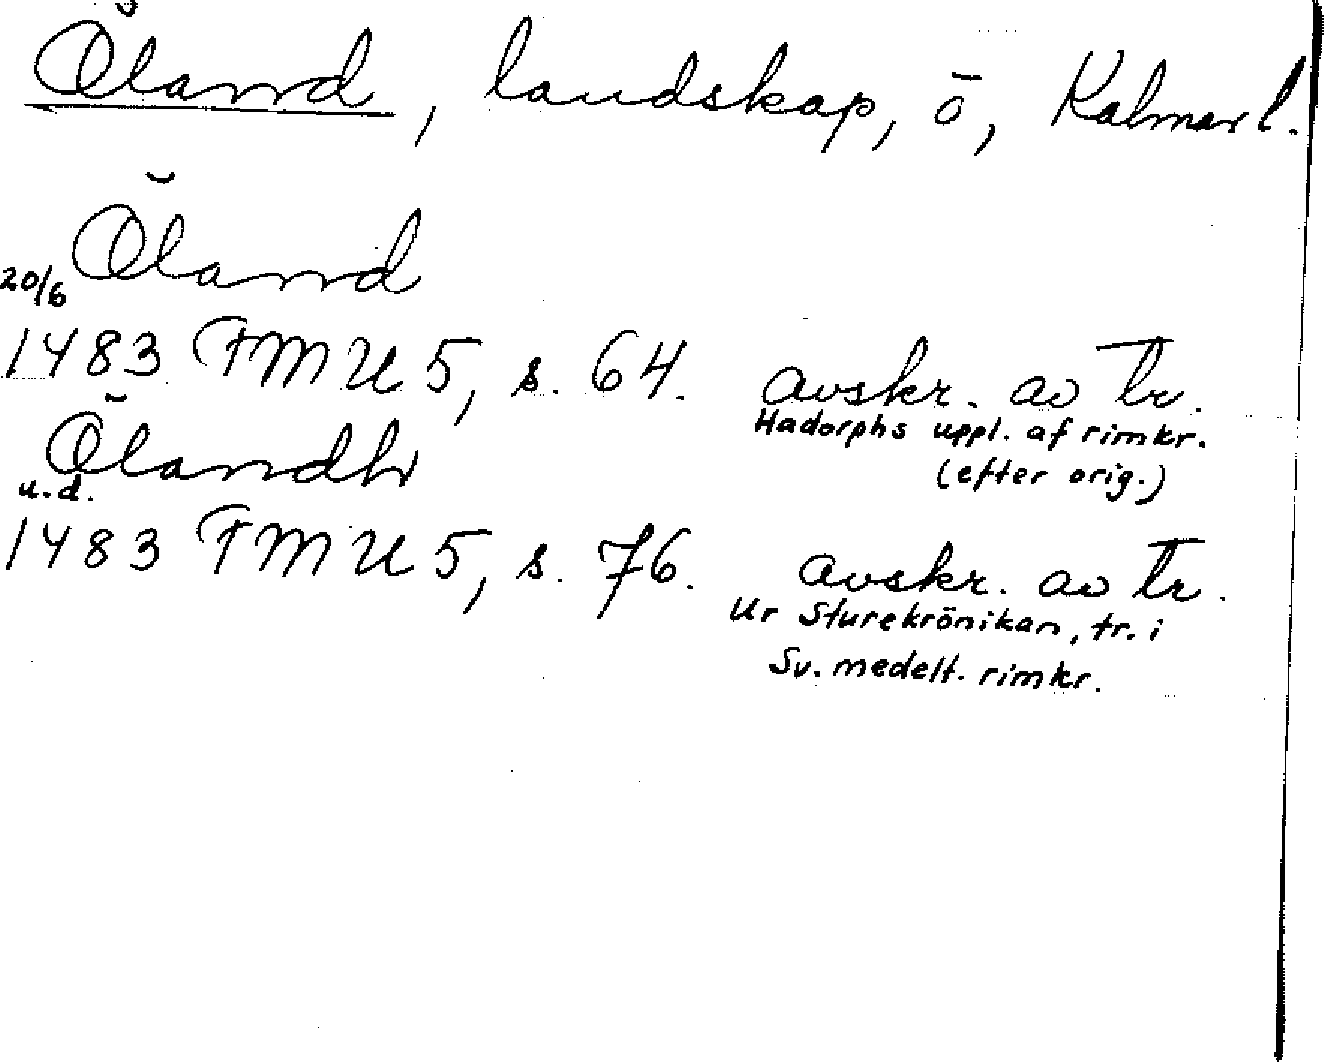 Öland, landskap, ö, Kalmar l.
Öland
20/6
1483 FMU 5, s. 64. avskr. av tr.
Hadorphs uppl. af rimkr.
(efter orig.)
Ölandh
u.d.
1483 FMU 5, s. 76. avskr. av tr.
Ur Sturekrönikan, tr. i
Sv. medelt. rimkr.